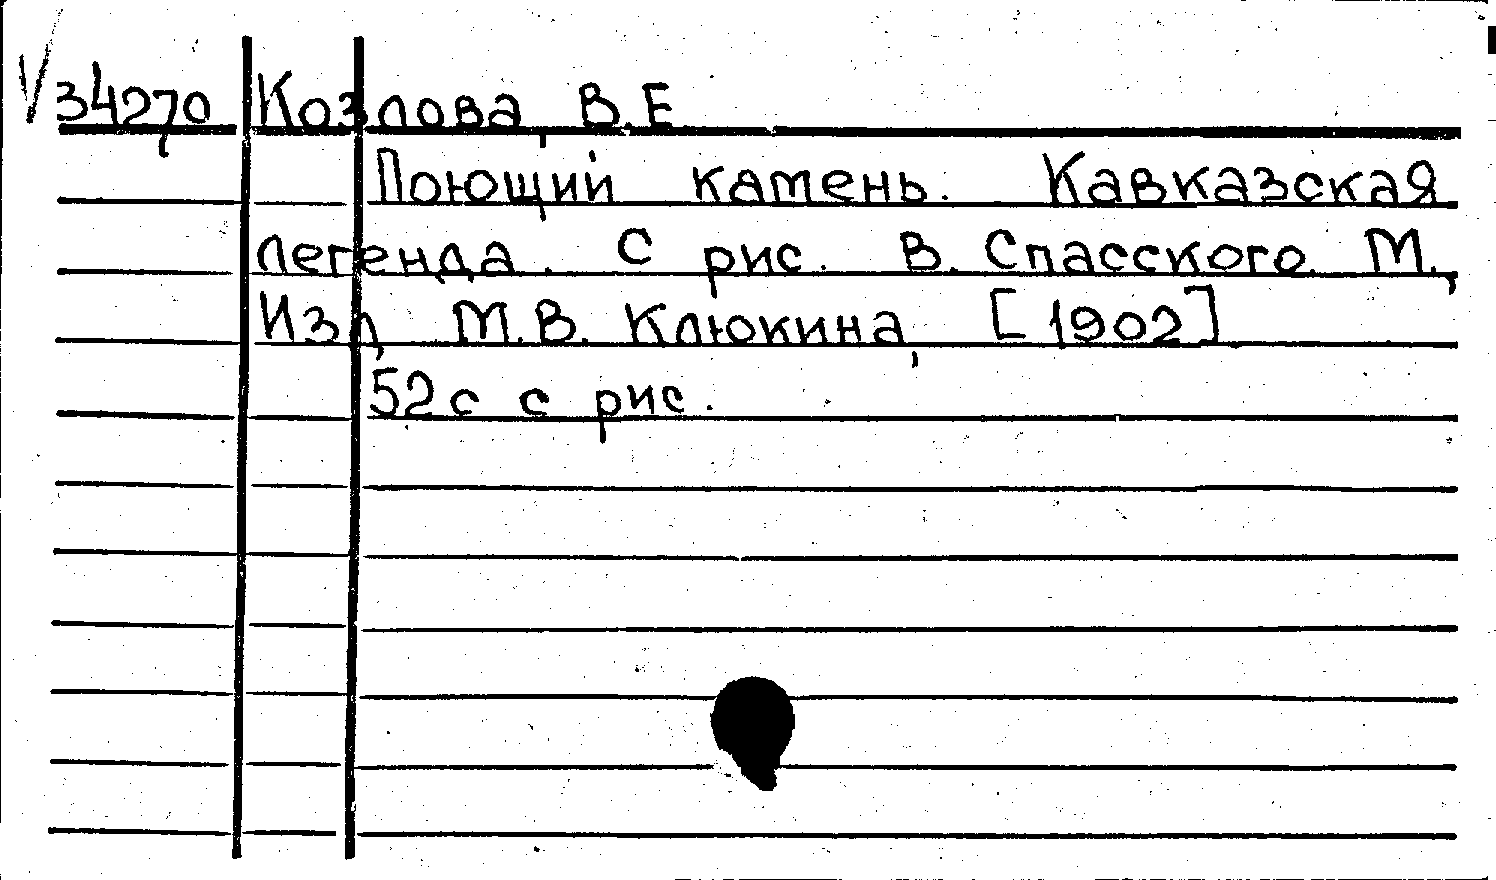 V 34270 Козлова, В.Е
Поющий камень. Кавказская
легенда. С рис. В. Спасского. М.,
Изд. М.В. Клюкина, [1902]
52 с с рис.